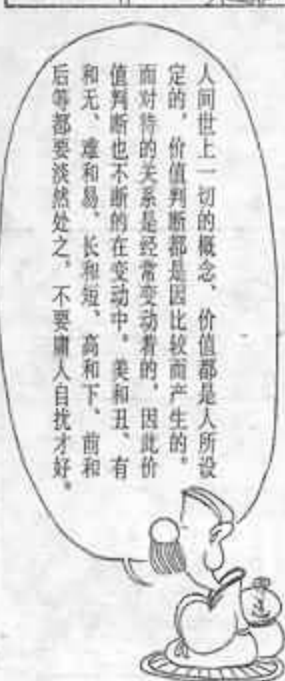 人间世上一切的概念、价值都是人所设
定的，价值判断都是因比较而产生的。
而对待的关系是经常变动着的，因此价
值判断也不断的在变动中。美和丑、有
和无、难和易、长和短、高和下、前和
后等都要淡然处之，不要庸人自扰才好。